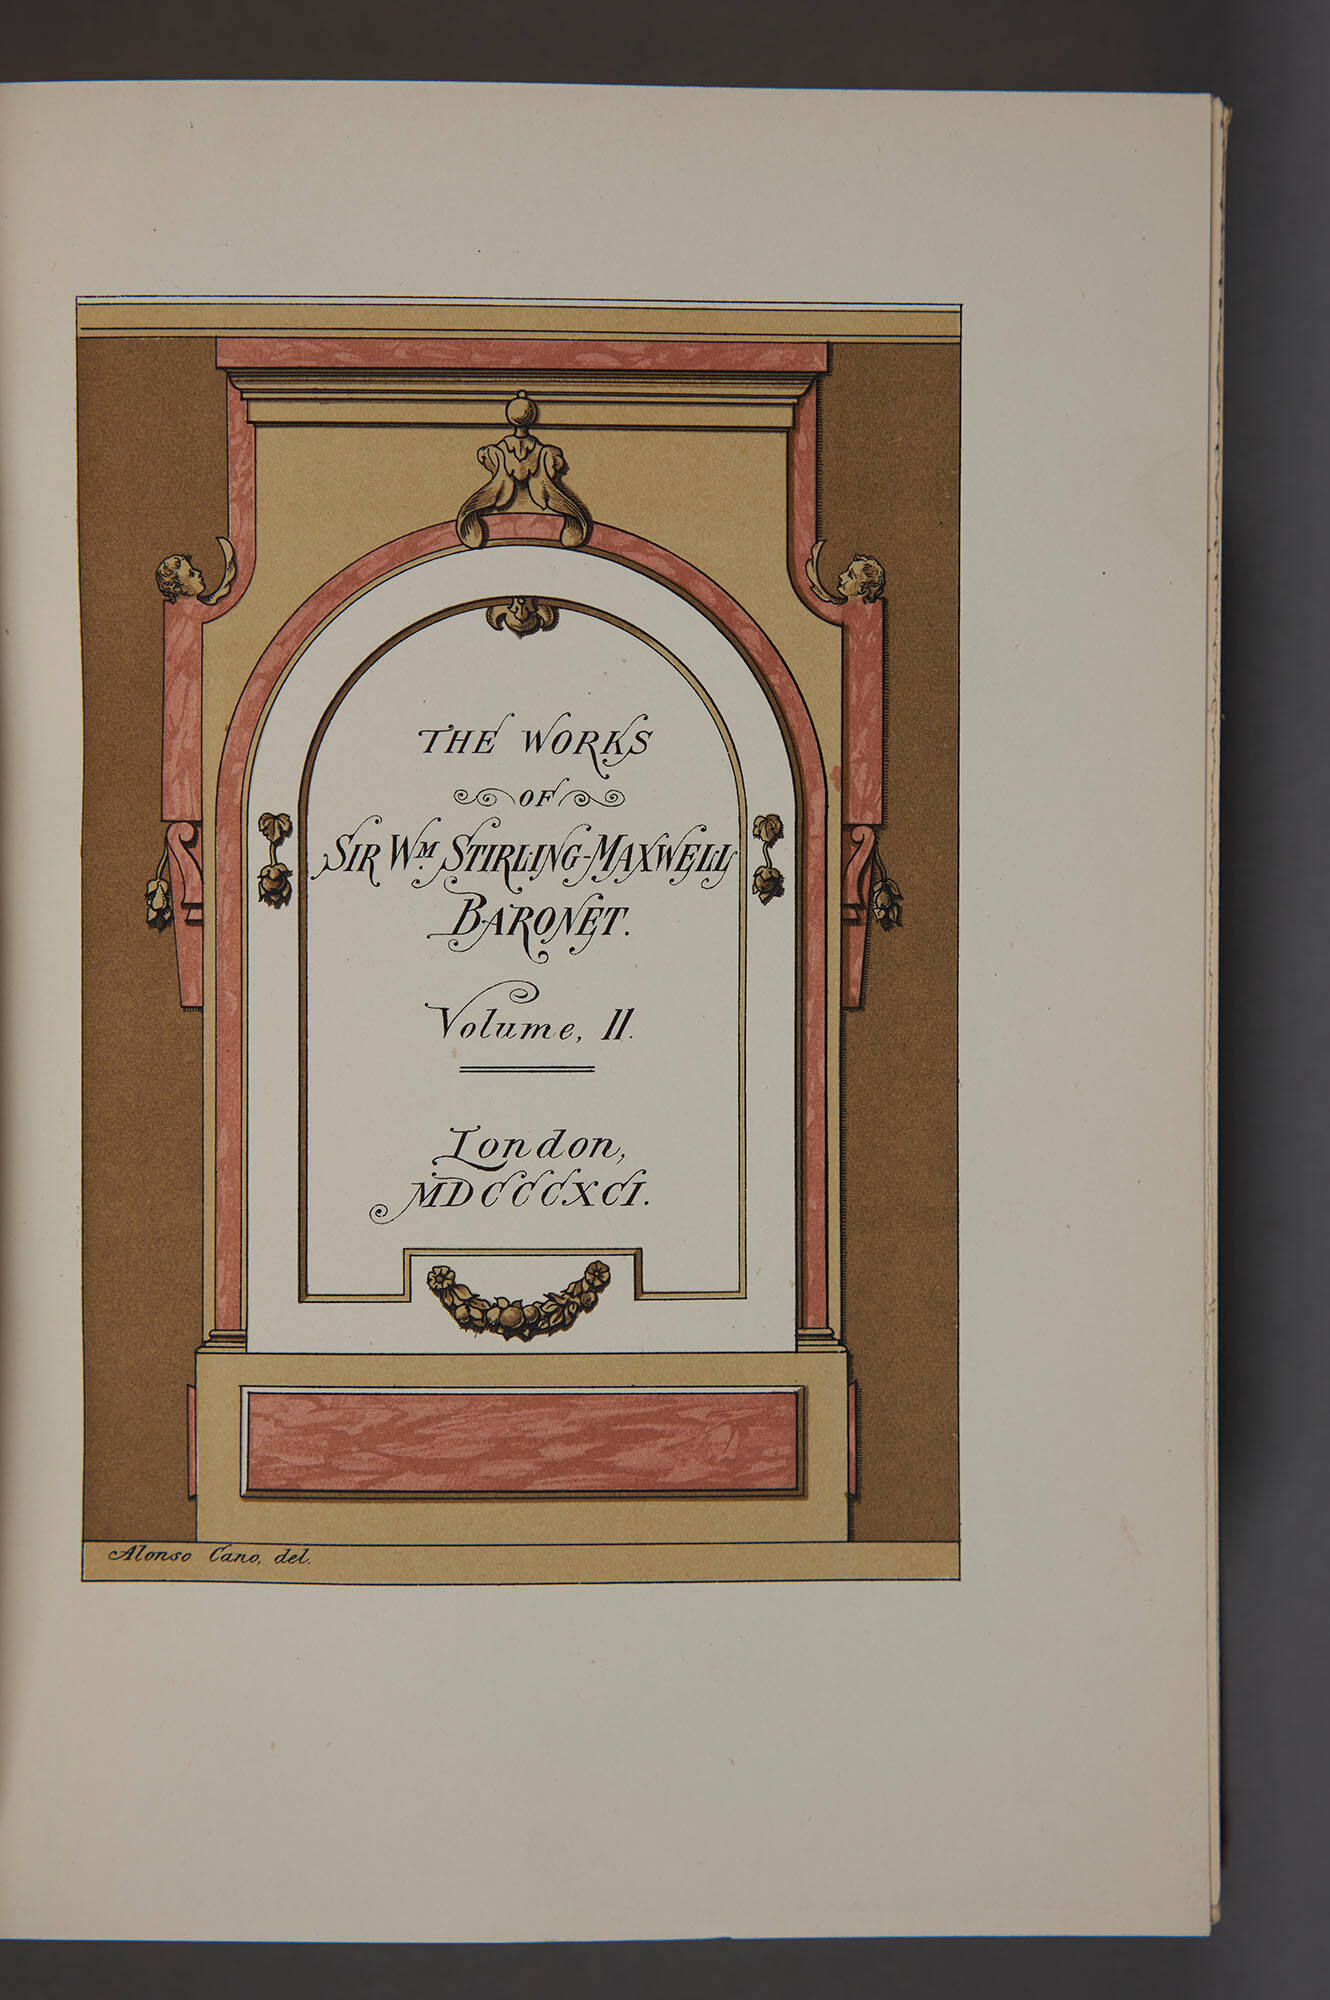 THE WORKS
OF
SIR WM. STIRLING-MAXWELL
BARONET.
Volume, II.
London,
MDCCCXCI.
Alonso Cano, del.